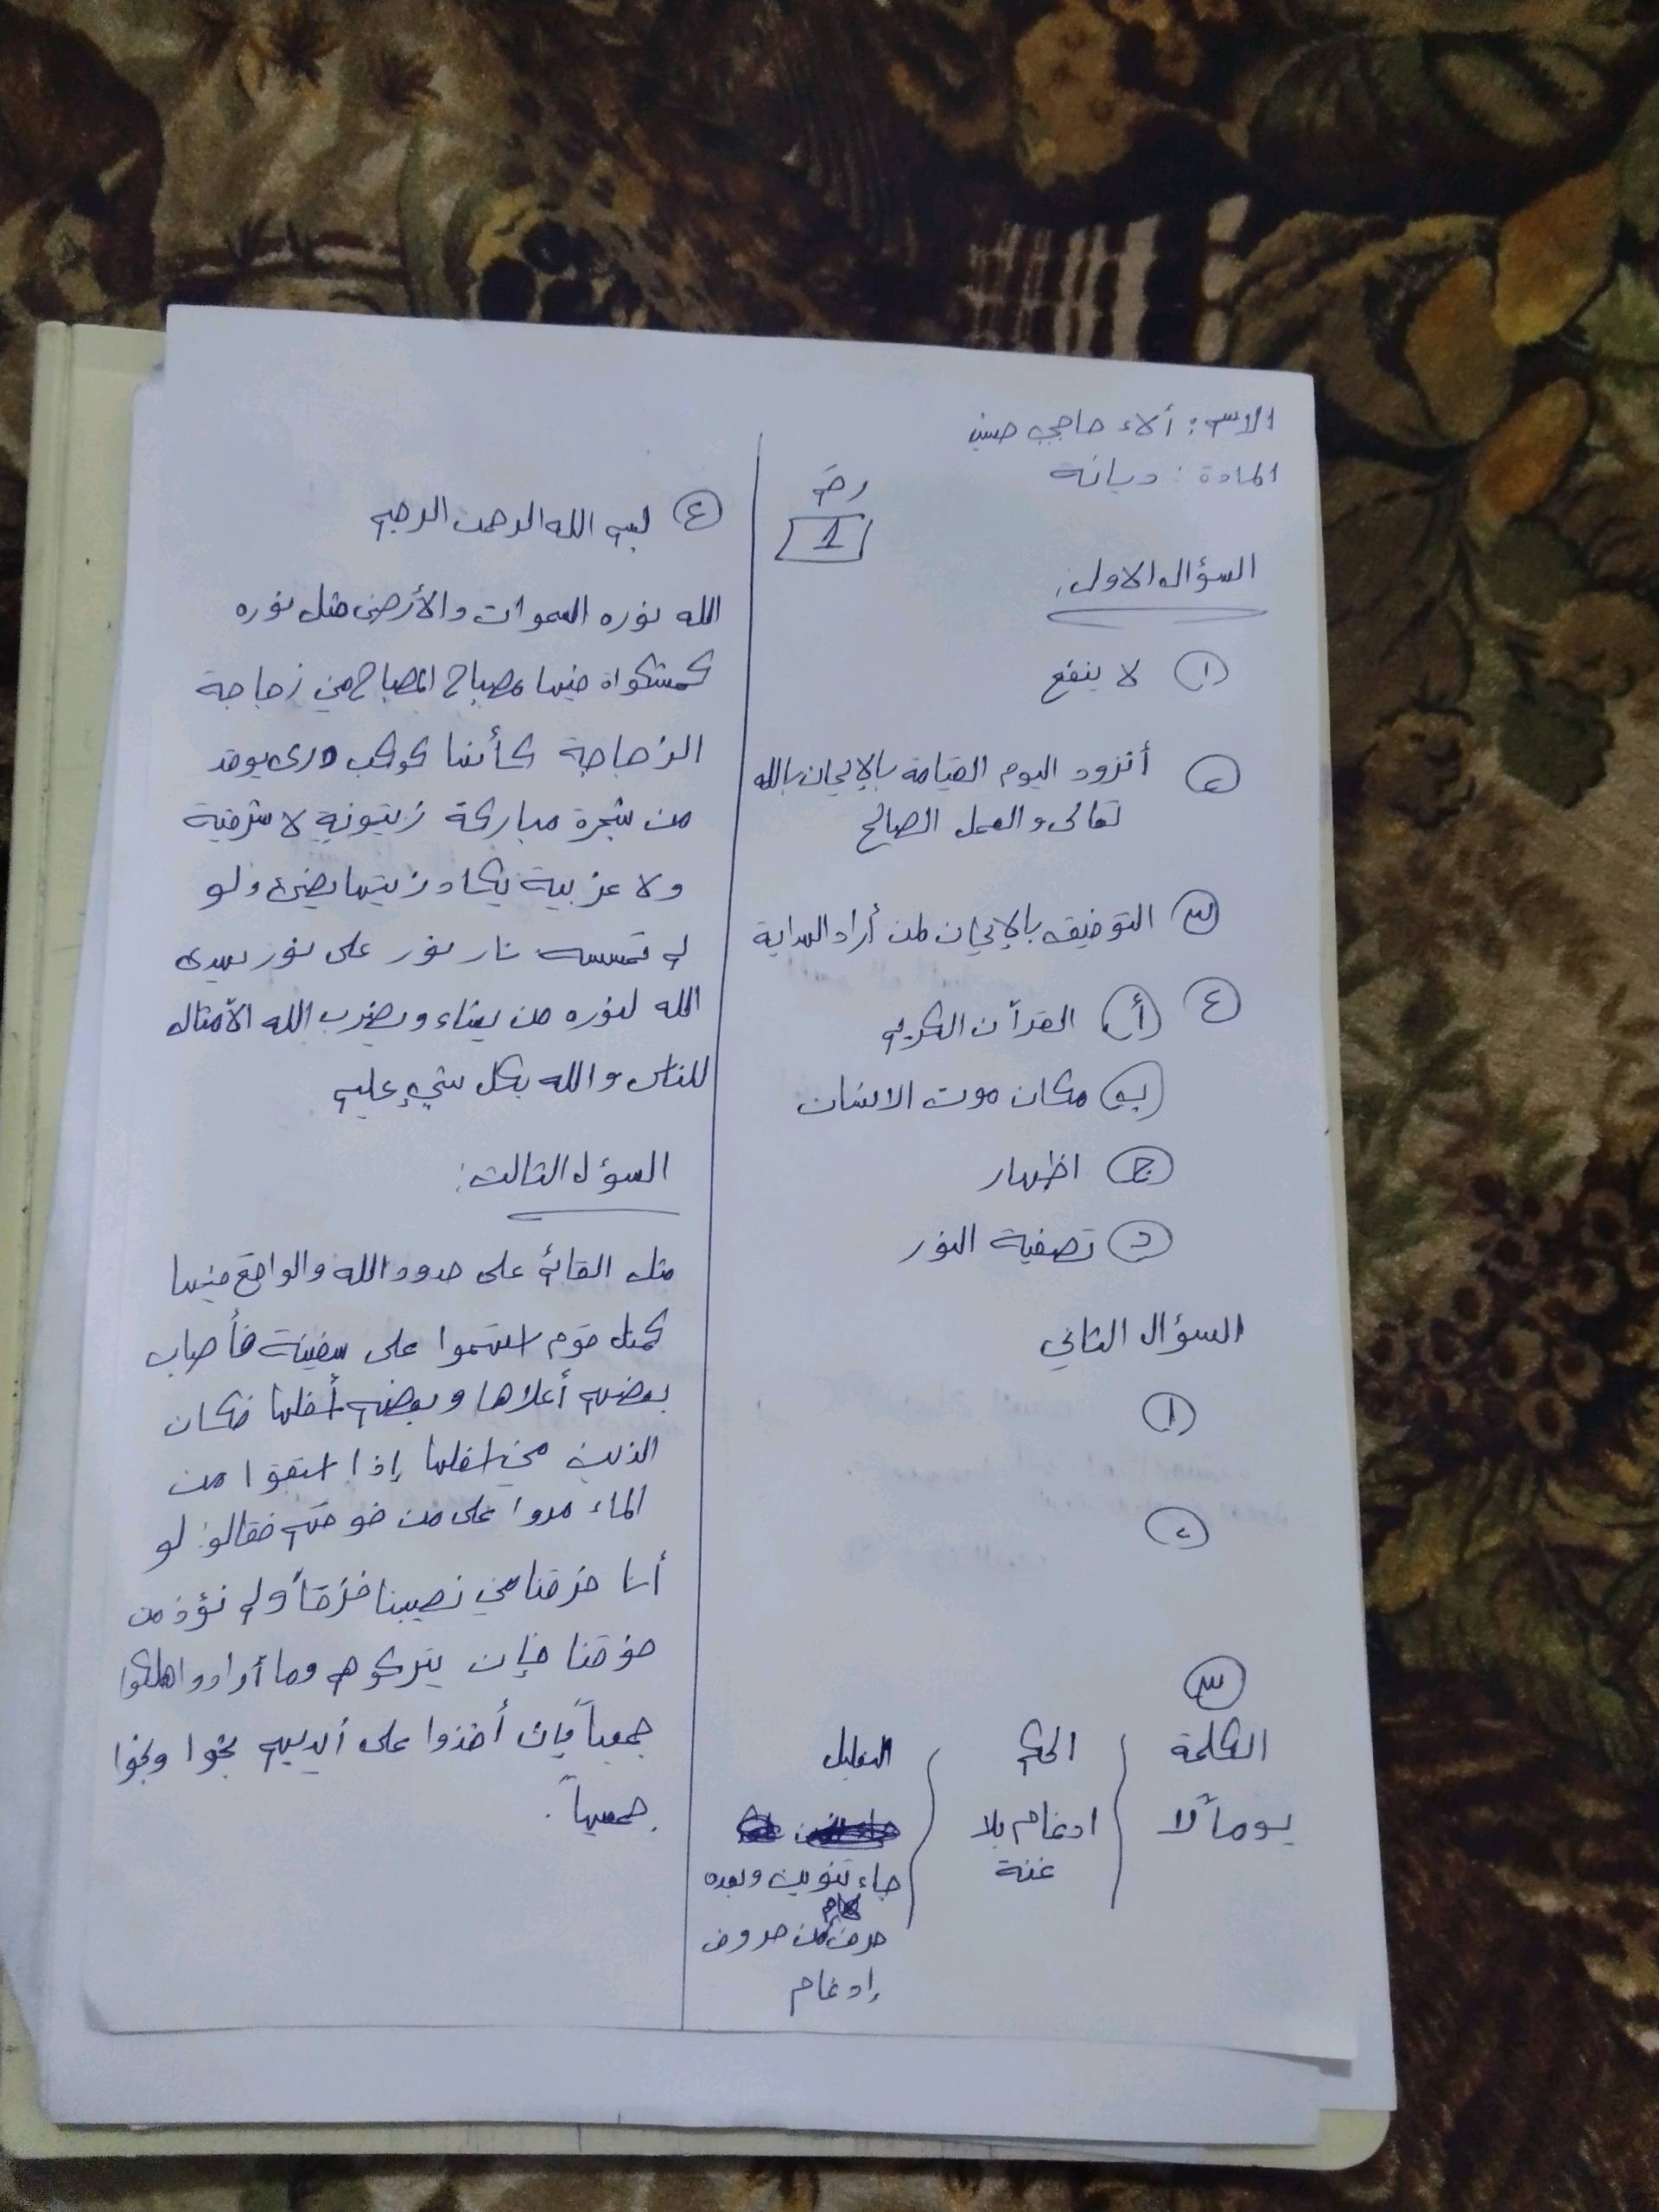 الاسم: ألاء حاجي حسن
المادة: ديانة
رقم
1
السؤال الاول:
١ لا ينفع
٢ أتزود اليوم القيامة بالإيمان بالله
تعالى والعمل الصالح
٣ التوفيق بالإيمان لمن أراد الهداية
٤ أ القرآن الكريم
ب مكان موت الانسان
ج اظهار
د تصفية النور
السؤال الثاني
١
٢
٣
الكلمة الحكم التعليل
يوماً لا ادغام بلا
غنة
جاء تنوين وبعده
حرف من حروف
إدغام
٤ بسم الله الرحمن الرحيم
الله نوره السموات والأرض مثل نوره
كمشكواة فيها مصباح المصباح في زجاجة
الزجاجة كأنها كوكب دري يوقد
من شجرة مباركة زيتونة لا شرقية
ولا غربية يكاد زيتها يضيء ولو
لم تمسسه نار نور على نور يهدي
الله لنوره من يشاء ويضرب الله الأمثال
للناس والله بكل شيء عليم
السؤل الثالث:
مثل القائم على حدود الله والواقع فيها
كمثل قوم استهموا على سفينة فأصاب
بعضهم أعلاها وبعضهم أسفلها فكان
الذين في اسفلها إذا استقوا من
الماء مروا على من فوقهم فقالو: لو
أنا خرقنا في نصيبنا خرقاً ولم نؤذ من
فوقنا فإن يتركوهم وما أرادوا هلكوا
جميعاً فإن أخذوا على أيديهم نجوا ونجوا
جميعاً.